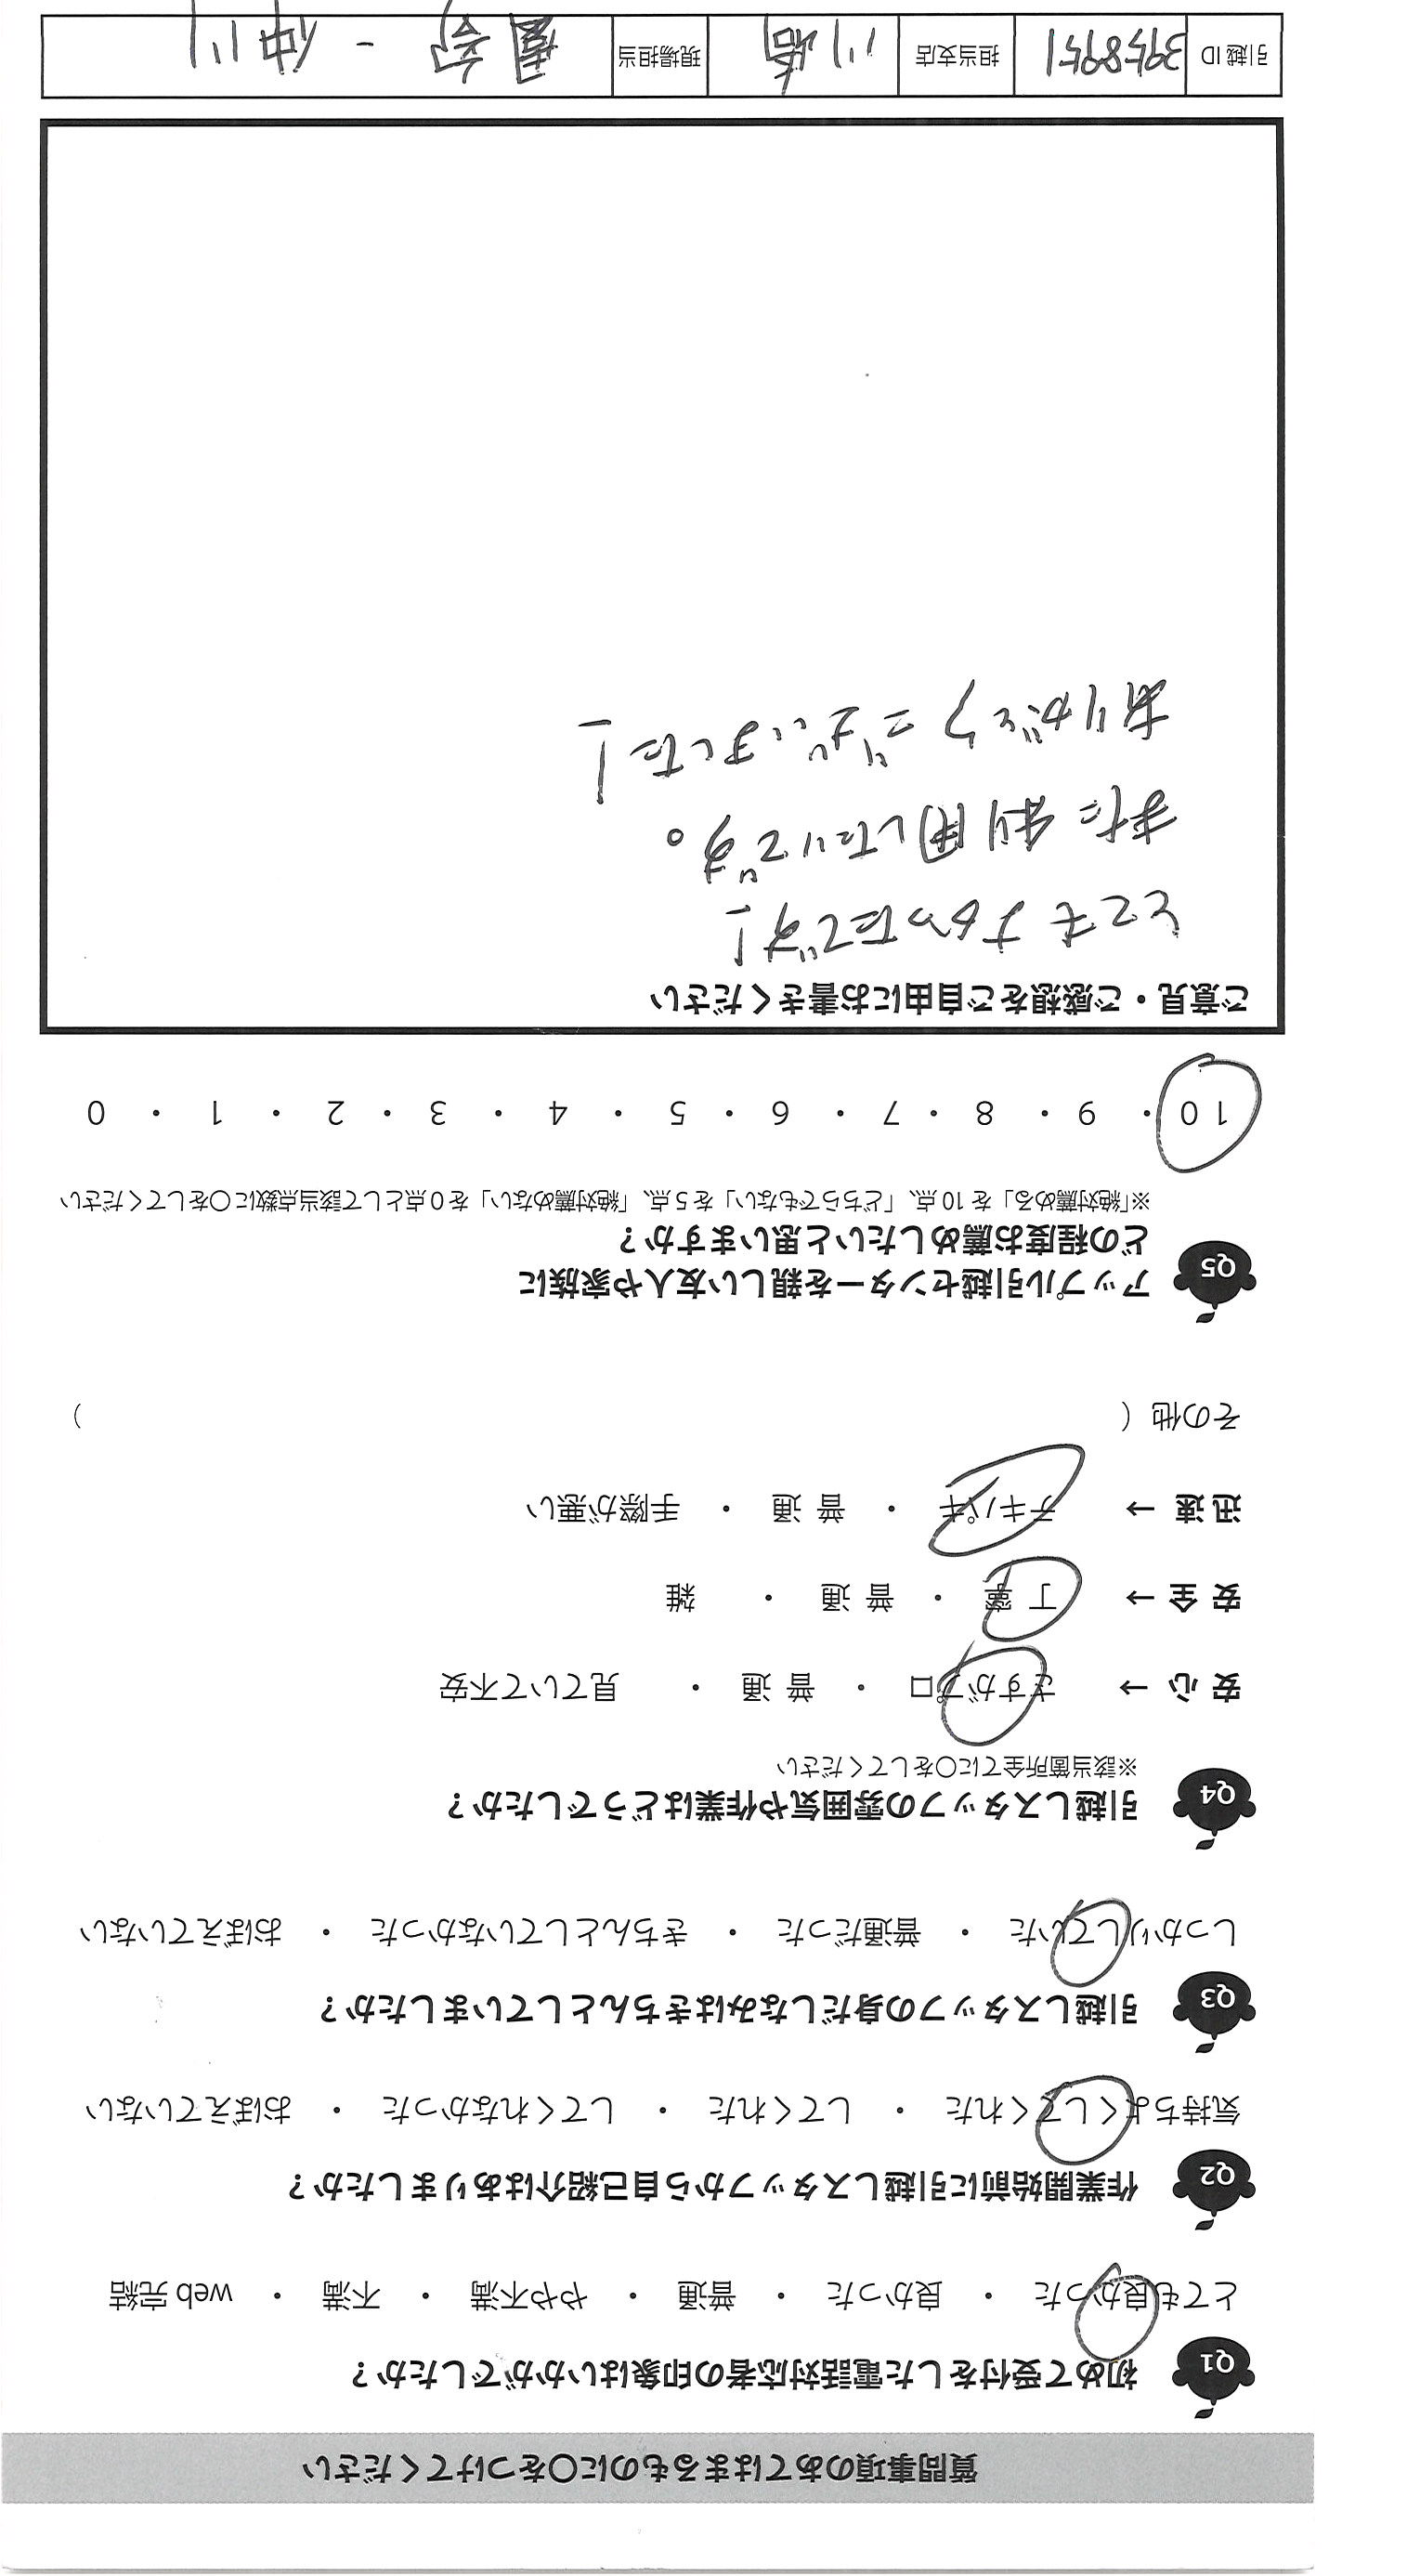 質問事項のあてはまるものに〇をつけてください
Q1 初めて受付をした電話対応者の印象はいかがでしたか？
とても良かった ・ 良かった ・ 普通 ・ やや不満 ・ 不満 ・ web 完結
Q2 作業開始前に引越しスタッフから自己紹介はありましたか？
気持ちよくしてくれた ・ してくれた ・ してくれなかった ・ おぼえていない
Q3 引越しスタッフの身だしなみはきちんとしていましたか？
しっかりしていた ・ 普通だった ・ きちんとしていなかった ・ おぼえていない
Q4 引越しスタッフの雰囲気や作業はどうでしたか？
※該当箇所全てに〇をしてください
安 心 → さすがプロ ・ 普 通 ・ 見ていて不安
安 全 → 丁 寧 ・ 普 通 ・ 雑
迅 速 → テキパキ ・ 普 通 ・ 手際が悪い
その他（ ）
Q5 アップル引越センターを親しい友人や家族に
どの程度お薦めしたいと思いますか？
※「絶対薦める」を 10 点、「どちらでもない」を 5 点、「絶対薦めない」を 0 点として該当点数に〇をしてください
10 ・ 9 ・ 8 ・ 7 ・ 6 ・ 5 ・ 4 ・ 3 ・ 2 ・ 1 ・ 0
ご意見・ご感想をご自由にお書きください
とても よかったです！
また 利用したいです。
ありがとう ございました！
引越 ID 3958951 担当支店 川崎 現場担当 - 仲川